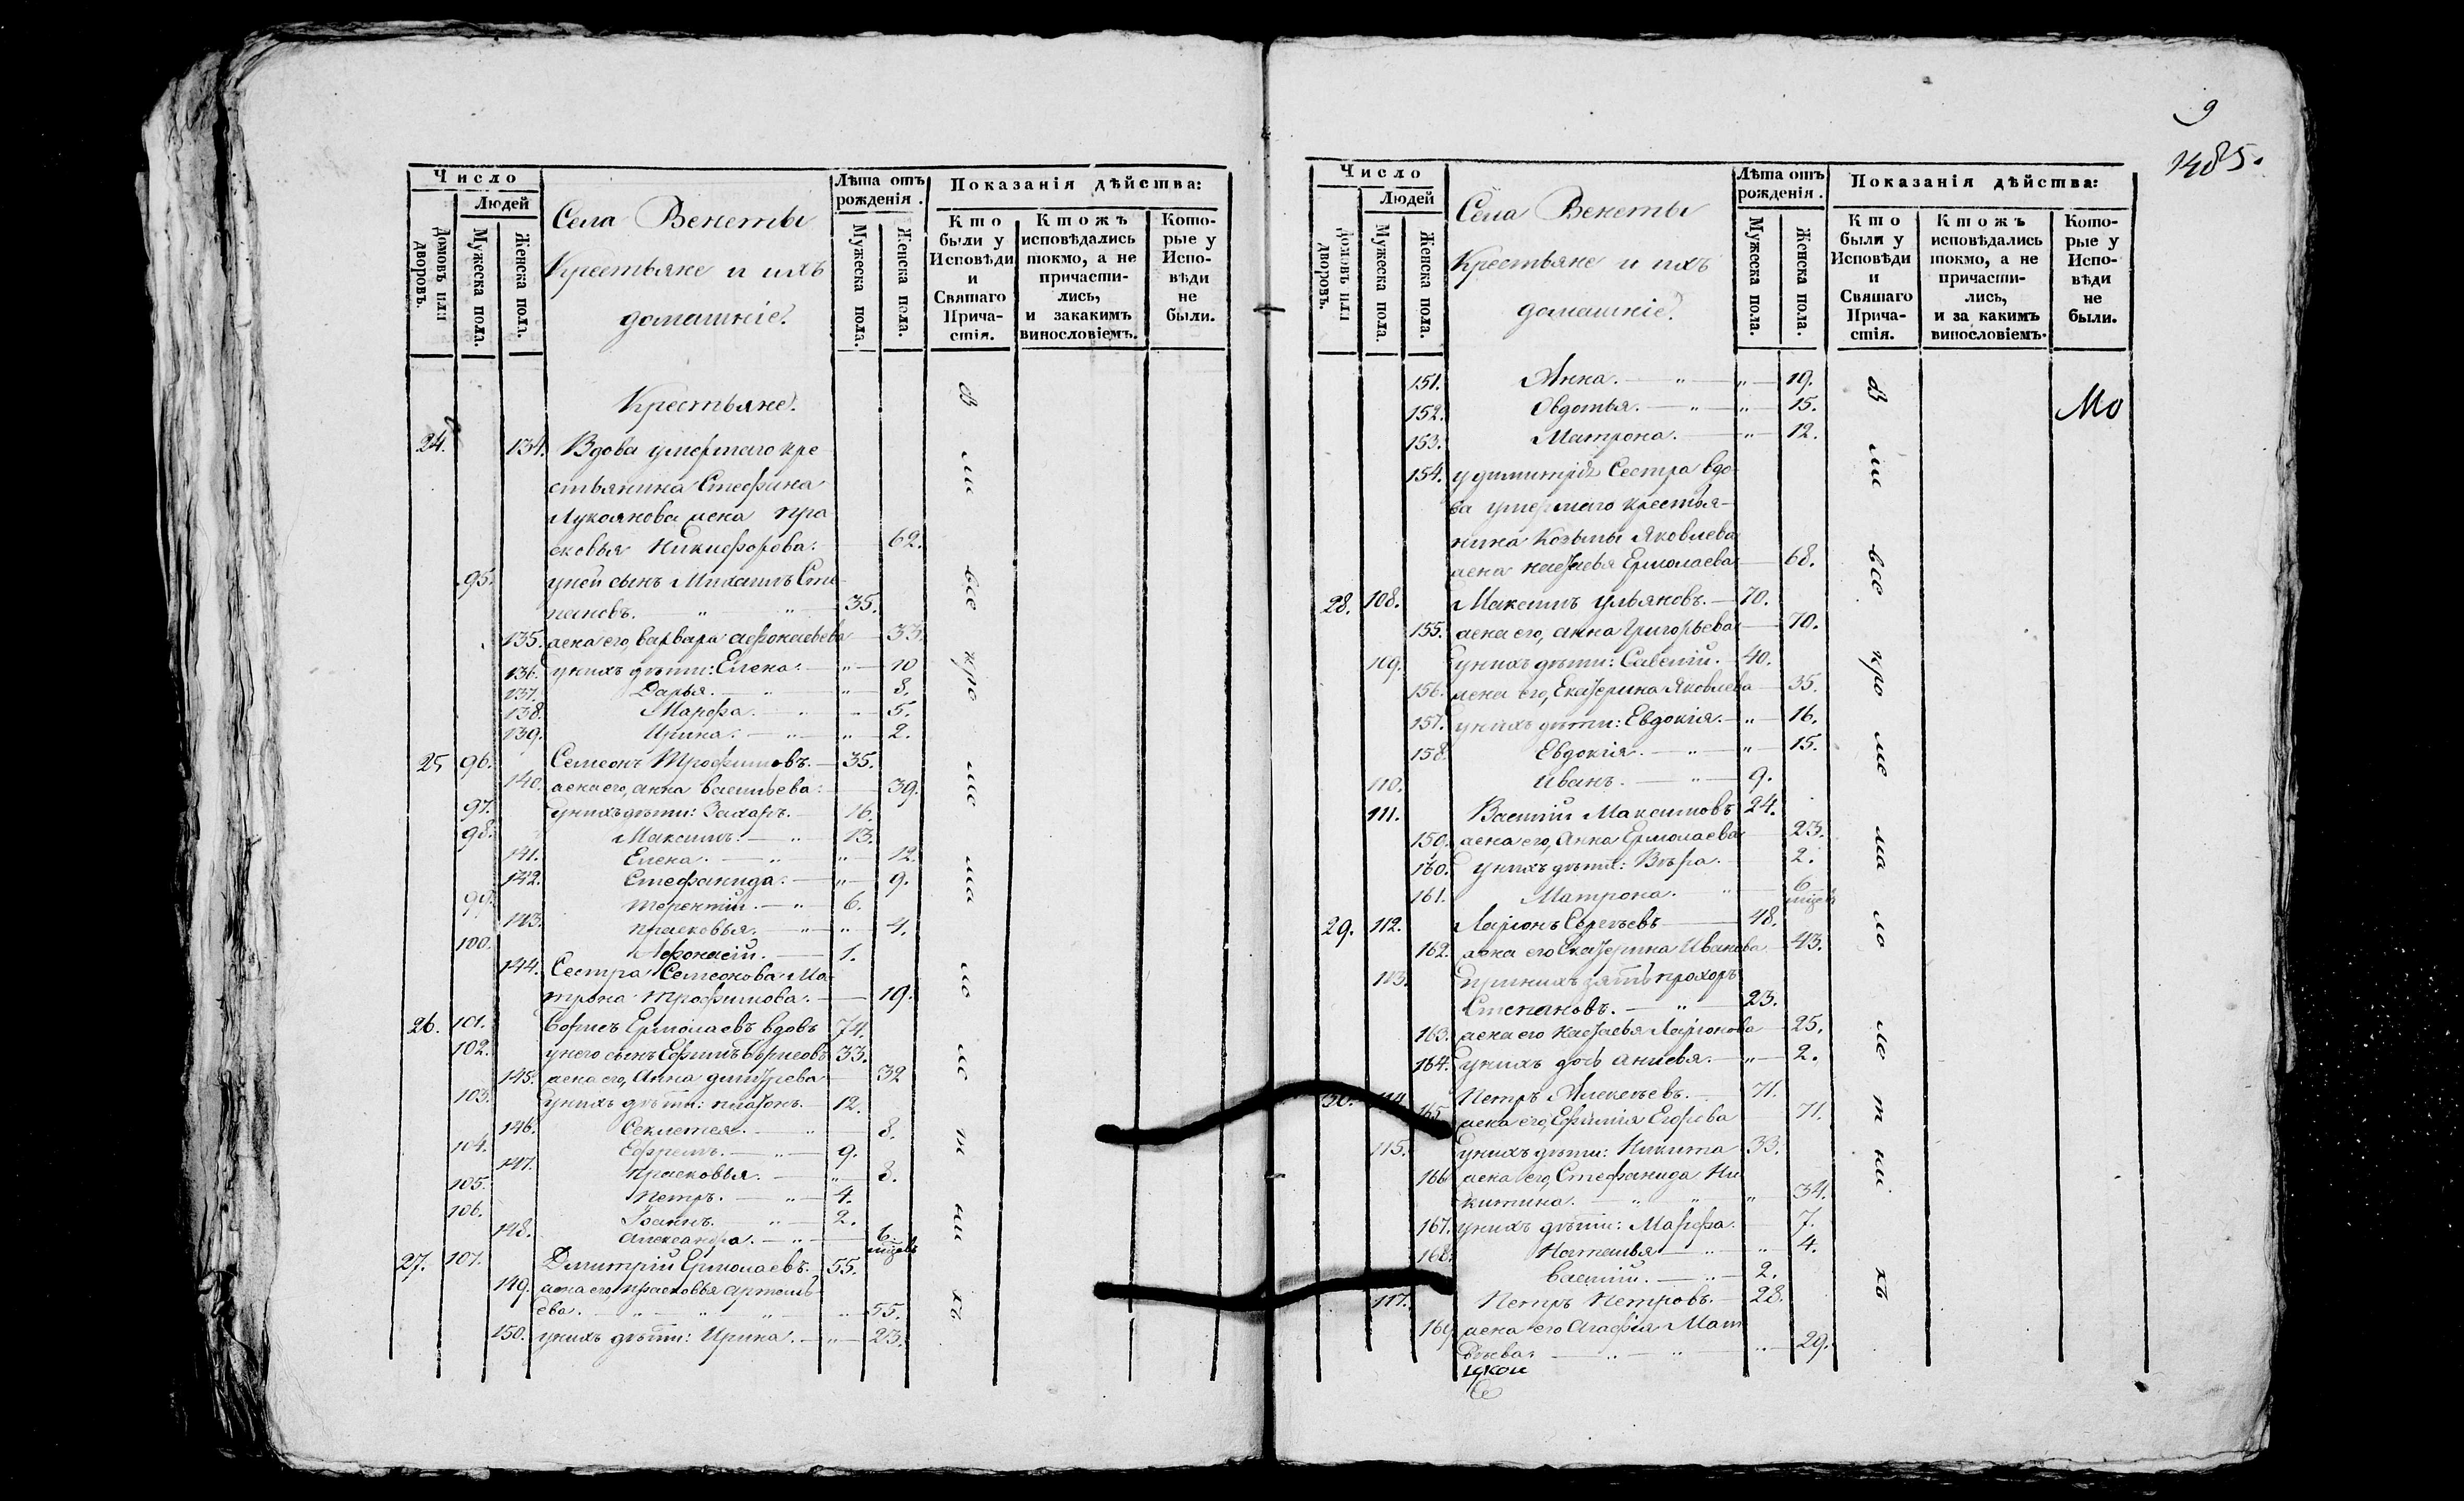 Число
Людей
Домовъ или дворовъ.
Мужеска пола.
Женска пола.
Села Венеты
Крестьяне и ихъ
домашніе.
Лѣта отъ рожденія.
Мужеска пола.
Женска пола.
Показанія дѣйства:
Кто были у Исповѣди и Святаго Причастія.
Ктожъ исповѣдались токмо, а не причастились, и закакимъ винословіемъ.
Которые у Исповѣди не были.
Крестьяне.
24. 134. Вдова умершаго кре
стьянина Стефана
Лукоянова жена Пра
сковья Никифорова. 62.
95. у ней сынъ Михаилъ Сте
пановъ. 35.
135. жена его, Варвара Афонасьева 33.
136. у нихъ дѣти: Елена. 10
137. Дарья. 8.
138. Марфа. 5.
139. Ирина. 2.
25 96. Семеонъ Трофимовъ. 35.
140. жена его, Анна Васильева: 39.
97. у нихъ дѣти: Захаръ. 16.
98. Максимъ. 13.
141. Елена. 12.
142. Стефанида. 9.
99. Терентій. 6.
143. Прасковья. 4.
100. Афонасій. 1.
144. Сестра Семеонова Ма
трона Трофимова. 19.
26. 101. Борисъ Ермолаевъ вдовъ 74.
102. у него сынъ Ефимъ Борисовъ 33.
145. жена его, Анна Дмитрева 32
103. у нихъ дѣти: Платонъ. 12.
146. Секлетея. 8.
104. Ефремъ. 9.
147. Прасковья. 8.
105. Петръ. 4.
106. Іоаннъ. 2.
148. Александра. 6
27. 107. Димитрій Ермолаевъ. 55.
149. жена его, Прасковья Артемь
ева. 55.
150. у нихъ дѣти: Ирина. 23.
В
ми
все
кро
ме
ма
ло
ле
т
ни
хъ
9
1485.
Число
Людей
Домовъ или дворовъ.
Мужеска пола
Женска пола.
Села Венеты
Крестьяне и ихъ
домашніе.
Лѣта отъ рожденія.
Мужеска пола.
Женска пола.
Показанія дѣйства:
Кто были у Исповѣди и Святаго Причастія.
Ктожъ исповѣдались токмо, а не причастились, и за какимъ винословіемъ.
Которые у Исповѣди не были.
151. Анна. 19.
152. Овдотья. 15.
153. Матрона. 12.
154. у Димитрія Сестра вдо
ва умершаго крестья-
нина Козьмы Яковлева
жена Настасья Ермолаева 68.
28. 108. Максимъ Ульяновъ. 70.
155. жена его, Анна Григорьева 70.
109. у нихъ дѣти: Савелій. 40.
156. жена его, Екатерина Яковлева 35.
157. у нихъ дѣти: Евдокія. 16.
158. Евдокія. 15.
110. Иванъ. 9.
111. Василій Максимовъ 24.
150. жена его, Анна Ермолаева 23.
160. у нихъ дѣти: Вѣра. 2.
161. Матрона. 6
29. 112. Ларіонъ Сергѣевъ 48.
162. жена его Екатерина Иванова 43.
113. при нихъ зять Прохоръ
Степановъ. 23.
163. жена его Настасья Ларіонова 25.
164. у нихъ дочь Анисья. 2.
30. 114. Петръ Алексѣевъ. 71.
165. жена его, Ефимія Егорова 71.
115. у нихъ дѣти: Никита 33.
166 жена его, Стефанида Ни
китина. 34.
167. у нихъ дѣти: Марфа. 7.
168. Наталья 4.
Василій. 2.
117. Петръ Петровъ. 28.
169 жена его Агафія Мат
вѣева. 29.
В
ми
все
кро
ме
ма
ло
ле
т
ни
хъ
Мо